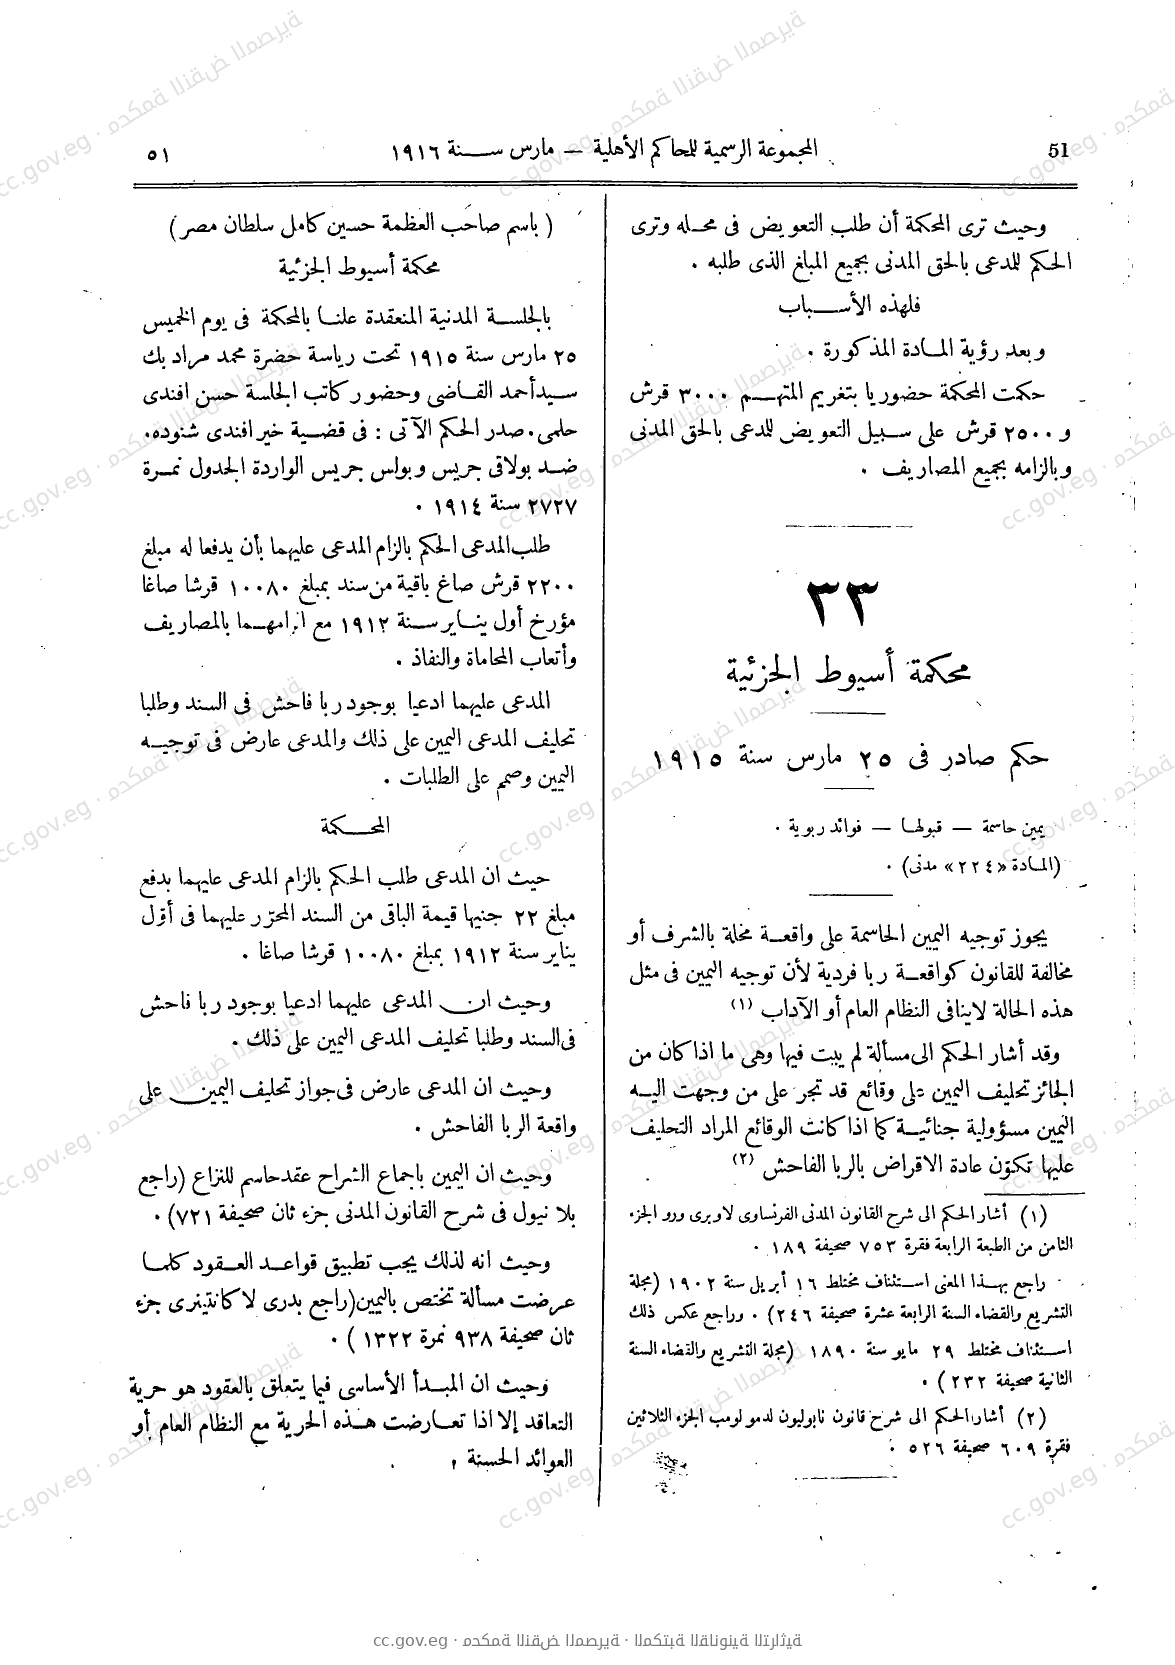 51
المجموعة الرسمية للمحاكم الأهلية — مارس ســنة ١٩١٦
٥١
وحيث ترى المحكمة أن طلب التعويض فى محله وترى
الحكم للمدعى بالحق المدنى بجميع المبلغ الذى طلبه .
فلهذه الأسباب
وبعد رؤية المادة المذكورة .
حكمت المحكمة حضوريا بتغريم المتهم ٣٠٠٠ قرش
و ٢٥٠٠ قرش على سبيل التعويض للمدعى بالحق المدنى
وبالزامه بجميع المصاريف .
٣٣
محكمة أسيوط الجزئية
حكم صادر فى ٢٥ مارس سنة ١٩١٥
يمين حاسمة — قبولها — فوائد ربوية .
(المادة «٢٢٤» مدنى) .
يجوز توجيه اليمين الحاسمة على واقعة مخلة بالشرف أو
مخالفة للقانون كواقعة ربا فردية لأن توجيه اليمين فى مثل
هذه الحالة لاينافى النظام العام أو الآداب (١)
وقد أشار الحكم الى مسألة لم يبت فيها وهى ما اذا كان من
الجائز تحليف اليمين على وقائع قد تجر على من وجهت اليه
اليمين مسؤولية جنائية كما اذا كانت الوقائع المراد التحليف
عليها تكوّن عادة الاقراض بالربا الفاحش (٢)
(١) أشار الحكم الى شرح القانون المدنى الفرنساوى لاوبرى ورو الجزء
الثامن من الطبعة الرابعة فقرة ٧٥٣ صحيفة ١٨٩ .
راجع بهذا المعنى استئناف مختلط ١٦ أبريل سنة ١٩٠٢ (مجلة
التشريع والقضاء السنة الرابعة عشرة صحيفة ٢٤٦) . وراجع عكس ذلك
استئناف مختلط ٢٩ مايو سنة ١٨٩٠ (مجلة التشريع والقضاء السنة
الثانية صحيفة ٢٣٢) .
(٢) أشار الحكم الى شرح قانون نابوليون لدمولومب الجزء الثلاثين
فقرة ٦٠٩ صحيفة ٥٢٦ .
( باسم صاحب العظمة حسين كامل سلطان مصر )
محكمة أسيوط الجزئية
بالجلسة المدنية المنعقدة علنا بالمحكمة فى يوم الخميس
٢٥ مارس سنة ١٩١٥ تحت رياسة حضرة محمد مراد بك
سيد أحمد القاضى وحضور كاتب الجلسة حسن افندى
حلمى . صدر الحكم الآتى : فى قضية خير افندى شنوده .
ضد بولاقى جريس وبولس جريس الواردة الجدول نمرة
٢٧٢٧ سنة ١٩١٤ .
طلب المدعى الحكم بالزام المدعى عليهما بأن يدفعا له مبلغ
٢٢٠٠ قرش صاغ باقية من سند بمبلغ ١٠٠٨٠ قرشا صاغا
مؤرخ أول يناير سنة ١٩١٢ مع الزامهما بالمصاريف
وأتعاب المحاماة والنفاذ .
المدعى عليهما ادعيا بوجود ربا فاحش فى السند وطلبا
تحليف المدعى اليمين على ذلك والمدعى عارض فى توجيه
اليمين وصمم على الطلبات .
المحكمة
حيث ان المدعى طلب الحكم بالزام المدعى عليهما بدفع
مبلغ ٢٢ جنيها قيمة الباقى من السند المحرر عليهما فى أوّل
يناير سنة ١٩١٢ بمبلغ ١٠٠٨٠ قرشا صاغا .
وحيث ان المدعى عليهما ادعيا بوجود ربا فاحش
فى السند وطلبا تحليف المدعى اليمين على ذلك .
وحيث ان المدعى عارض فى جواز تحليف اليمين على
واقعة الربا الفاحش .
وحيث ان اليمين باجماع الشراح عقد حاسم للنزاع (راجع
بلا نيول فى شرح القانون المدنى جزء ثان صحيفة ٧٢١) .
وحيث انه لذلك يجب تطبيق قواعد العقود كلما
عرضت مسألة تختص باليمين (راجع بدرى لاكانتينرى جزء
ثان صحيفة ٩٣٨ نمرة ١٣٢٢ ) .
وحيث ان المبدأ الأساسى فيما يتعلق بالعقود هو حرية
التعاقد إلا اذا تعارضت هذه الحرية مع النظام العام أو
العوائد الحسنة .
cc.gov.eg · محكمة النقض المصرية · المكتبة القانونية التراثية